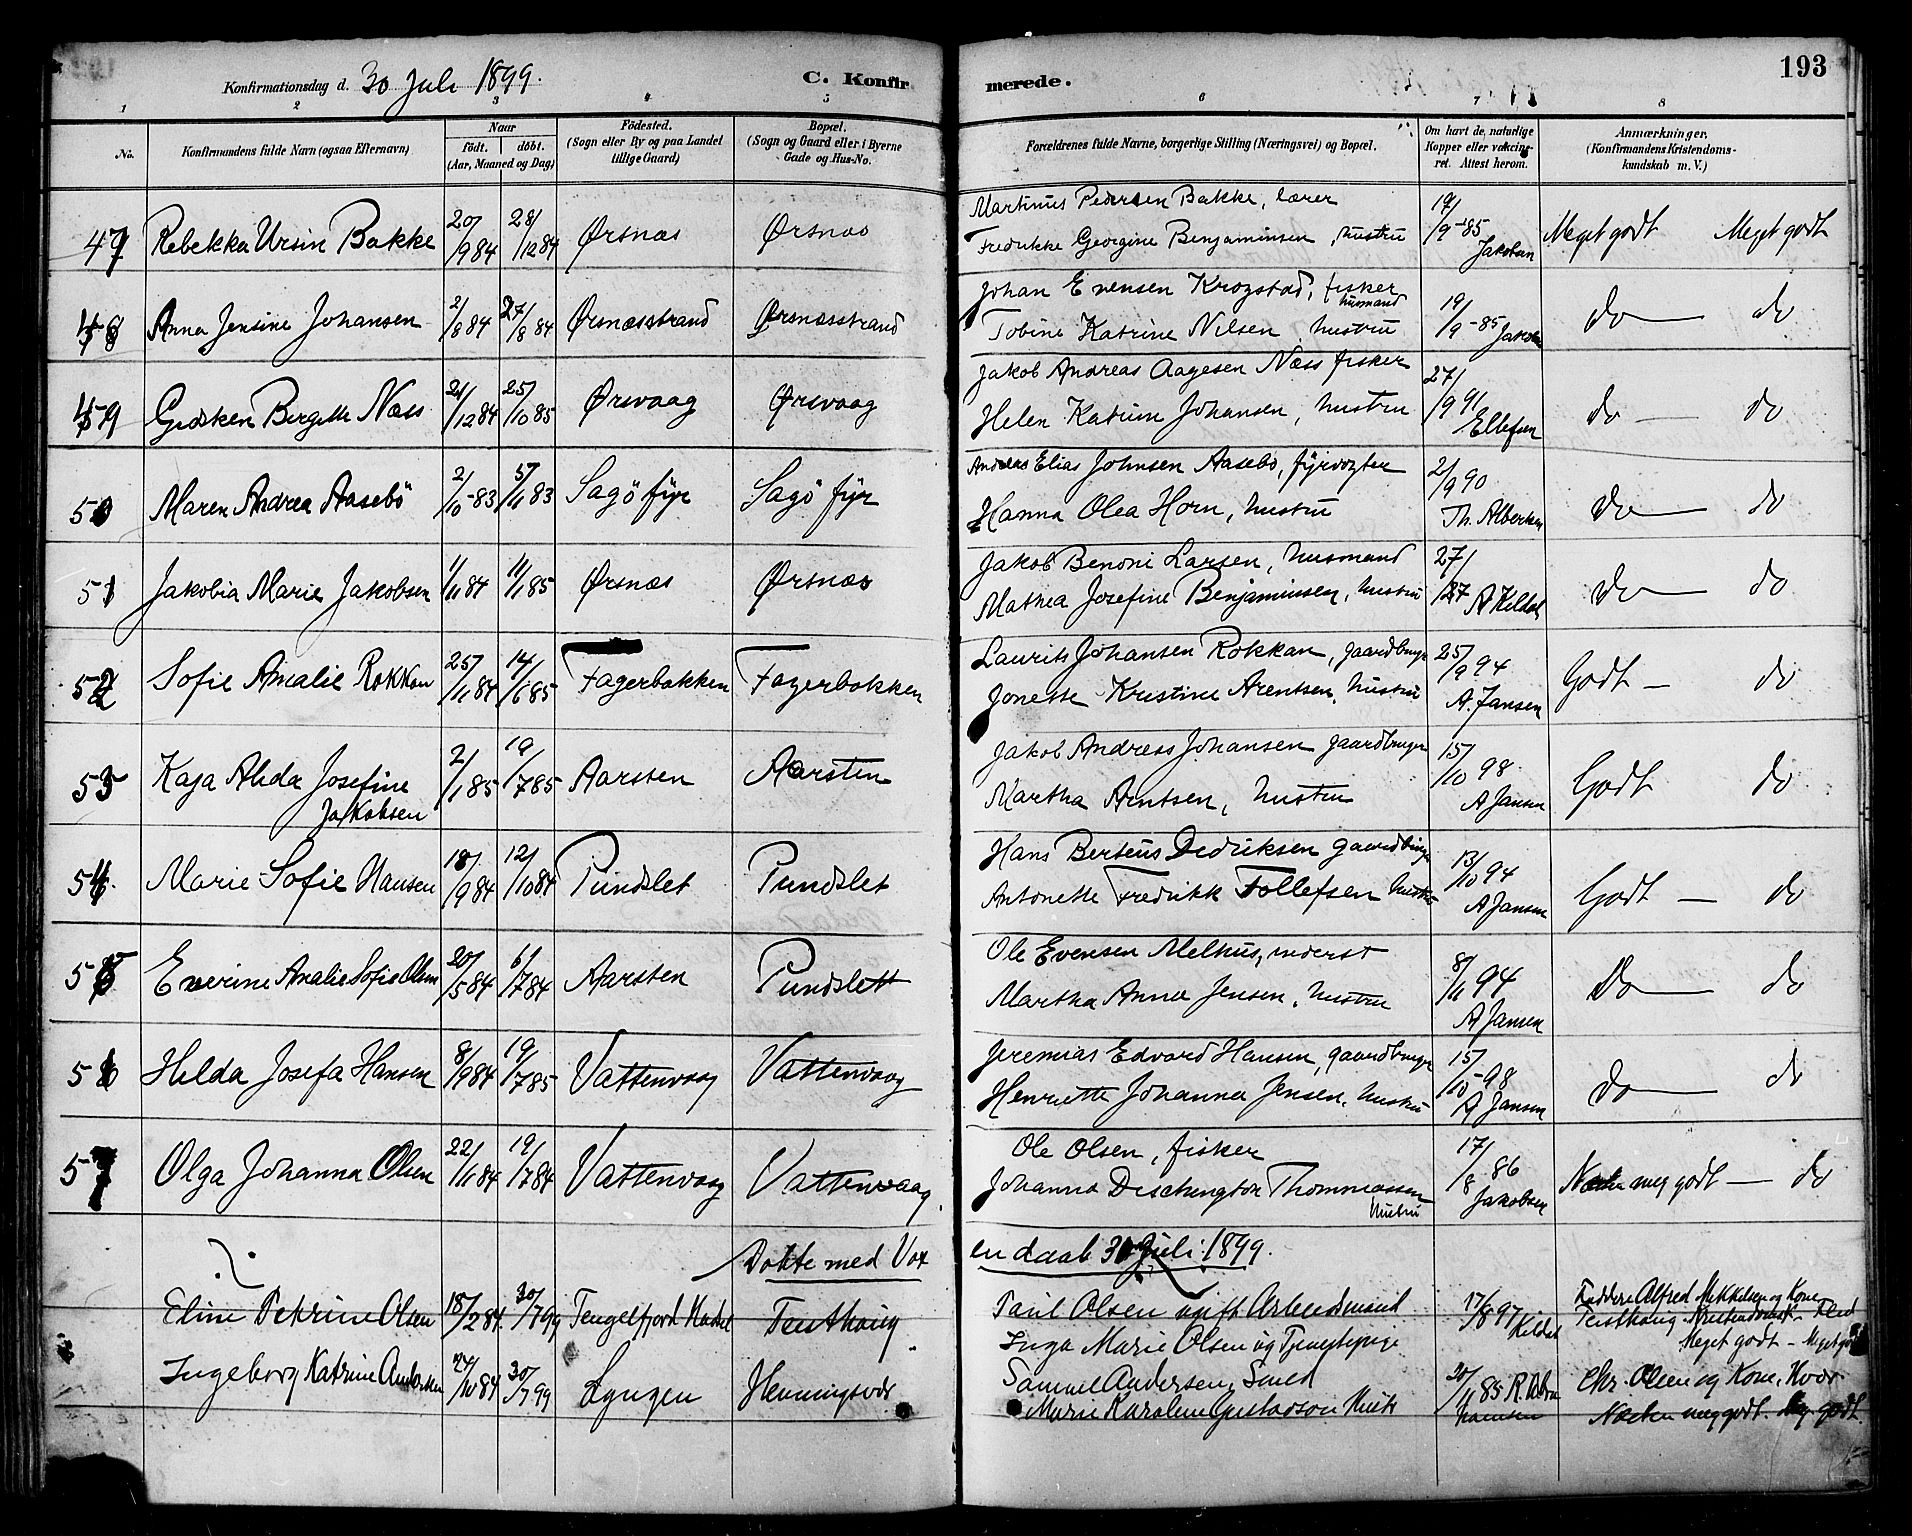 193
Konfirmationsdag d. 30 Juli 1899. C. Konfirmerede.
1 2 3 4 5 6 7 8
No. Konfirmandens fulde Navn (ogsaa Efternavn)
Naar
født. døbt.
(Aar, Maaned og Dag)
Fødested.
(Sogn eller By og paa Landet
tillige Gaard)
Bopæl.
(Sogn og Gaard eller i Byerne
Gade og Hus-No.
Forældrenes fulde Navne, borgerlige Stilling (Næringsvei) og Bopæl.
Om havt de naturlige
Kopper eller vaccine-
ret. Attest herom.
Anmærkninger,
(Konfirmandens Kristendoms-
kundskab m. V.)
Martinus Pedersen Bakke, lærer
47 Rebekka Ursin Bakke 20/9 84 28/12 84 Ørsnæs Ørsnæs Fredrikke Georgine Benjaminsen, hustru 19/9-85 Jakobsen Meget godt Meget godt
Johan Evensen Krogstad, fisker husmand
48 Anna Jensine Johansen 2/8 84 27/8 84 Ørsnæsstrand Ørsnæsstrand Tobine Katrine Nilsen hustru 19/9-85 do do
Jakob Andreas Aagesen Næss fisker
49 Gidsken Bergitte Næss 21/12 84 25/10 85 Ørsvaag Ørsvaag Helen Katrine Johansen, hustru 27/9 91 Ellefsen do do
Andreas Elias Johnsen Aasebø, fyrvogter
50 Maren Andrea Aasebö 2/10-83 5/11 83 Sagö fyr Sagö fyr Hanna Olea Horn, hustru 2/9 90 Th. Albertsen do do
Jakob Benoni Larsen, husmand
51 Jakobia Marie Jakobsen 1/11 84 11/1 85 Ørsnæs Ørsnæs Mathea Josefine Benjaminsen, hustru 27/ do do
Laurits Johansen Rokkan, gaardbruger
52 Sofie Amalie Rokkan 25/11 84 14/6 85 Fagerbakken Fagerbakken Jonette Kristine Arentsen, hustru 25/9 94 A. Jansen Godt do
Jakob Andreas Johansen gaardbruger
53 Kaja Alida Josefine Jakobsen 2/1 85 19/7 85 Aarsten Aarsten Martha Arntsen, hustru 15/10 98 A Jansen Godt do
Hans Berteus Dedriksen gaardbruger
54 Marie Sofie Hansen 18/9 84 12/10 84 Pundslet Pundslet Antonette Fredrikk Tollefsen hustru 13/10 94 A Jansen Godt do
Ole Evensen Melhus, inderst
55 Everine Amalie Sofie Olsen 20/5 84 6/7 84 Aarsten Pundslett Martha Anna Jensen, hustru 8/11 94 A Jansen Do do
Jeremias Edvard Hansen, gaardbruger
56 Helda Josefa Hansen 8/9 84 19/7 85 Vattenvaag Vattenvaag Henriette Johanna Jensen, hustru 15/10-98 A Jansen do do
Ole Olsen, fisker
57 Olga Johanna Olsen 22/1 84 19/7 84 Vattenvaag Vattenvaag. Johanna Dischington Thommassen hustru 17/8 86 Jakobsen Næsten meg godt do
Døbte med Voxendaab 30 Juli 1899.
Eline Petrine Olsen 18/2 84. 30/7 99 Tengelfjord Hadsel Teisthaug Paul Olsen ugift Arbeidsmand 17/8 97 Kildal Faddere Alfred Mikkelsen og Kone
Inga Marie Olsen ug Tjenestepige Meget godt - Meget godt
Ingeborg Katrine Andersen 24/10 84 30/7 99 Lyngen Henningsvær Samuel Andersen, Smed 20/11 85 Chr. Olsen og Kone,
Marie Karoline Gustavson Hustr Næsten meg godt. Meg. godt